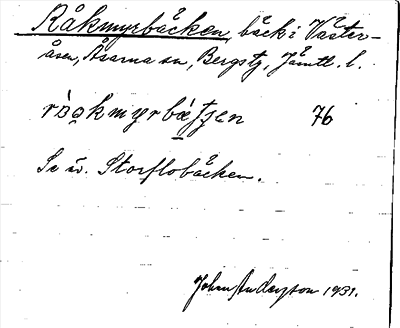 Råkmyrbäcken, bäck i Väster-
åsen, Åsarna sn, Bergstg, Jämtl. l.
76
Se äv. Storflobäcken.
John Anderzon 1931.